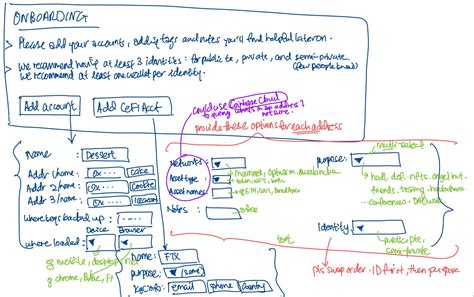 ONBOARDING
> Please add your accounts, adding tags and notes you'll find helpful later on.
> We recommend having at least 3 identities: for public, private, and semi-private.
We recommend at least one wallet per identity. (few people know)
Add account
Add CeFi Acct
could use Coinbase Cloud
to query
address?
not sure.
provide these options for each address
Name: Dessert
Addr 1/name: 0x...
Cake
Addr 2/name: 0x...
Cookie
Addr 3/name: 0x...
Icecream
where keys backed up:
where loaded:
Device
Browser
eg mobile, desktop
eg chrome, Brave, FF
Networks:
mainnet, optimism, avalanche
Asset type:
token, NFT, both
Asset names:
eg ETH, UNI,
Notes:
free
text
multi-select
purpose:
hodl, defi, nfts,
friends, testing, hackathons
conferences, DAOwork
Identity:
public, pte,
semi-private
pls swap order - ID first, then purpose
name: FTX
purpose: (same)
KYC info: email phone country